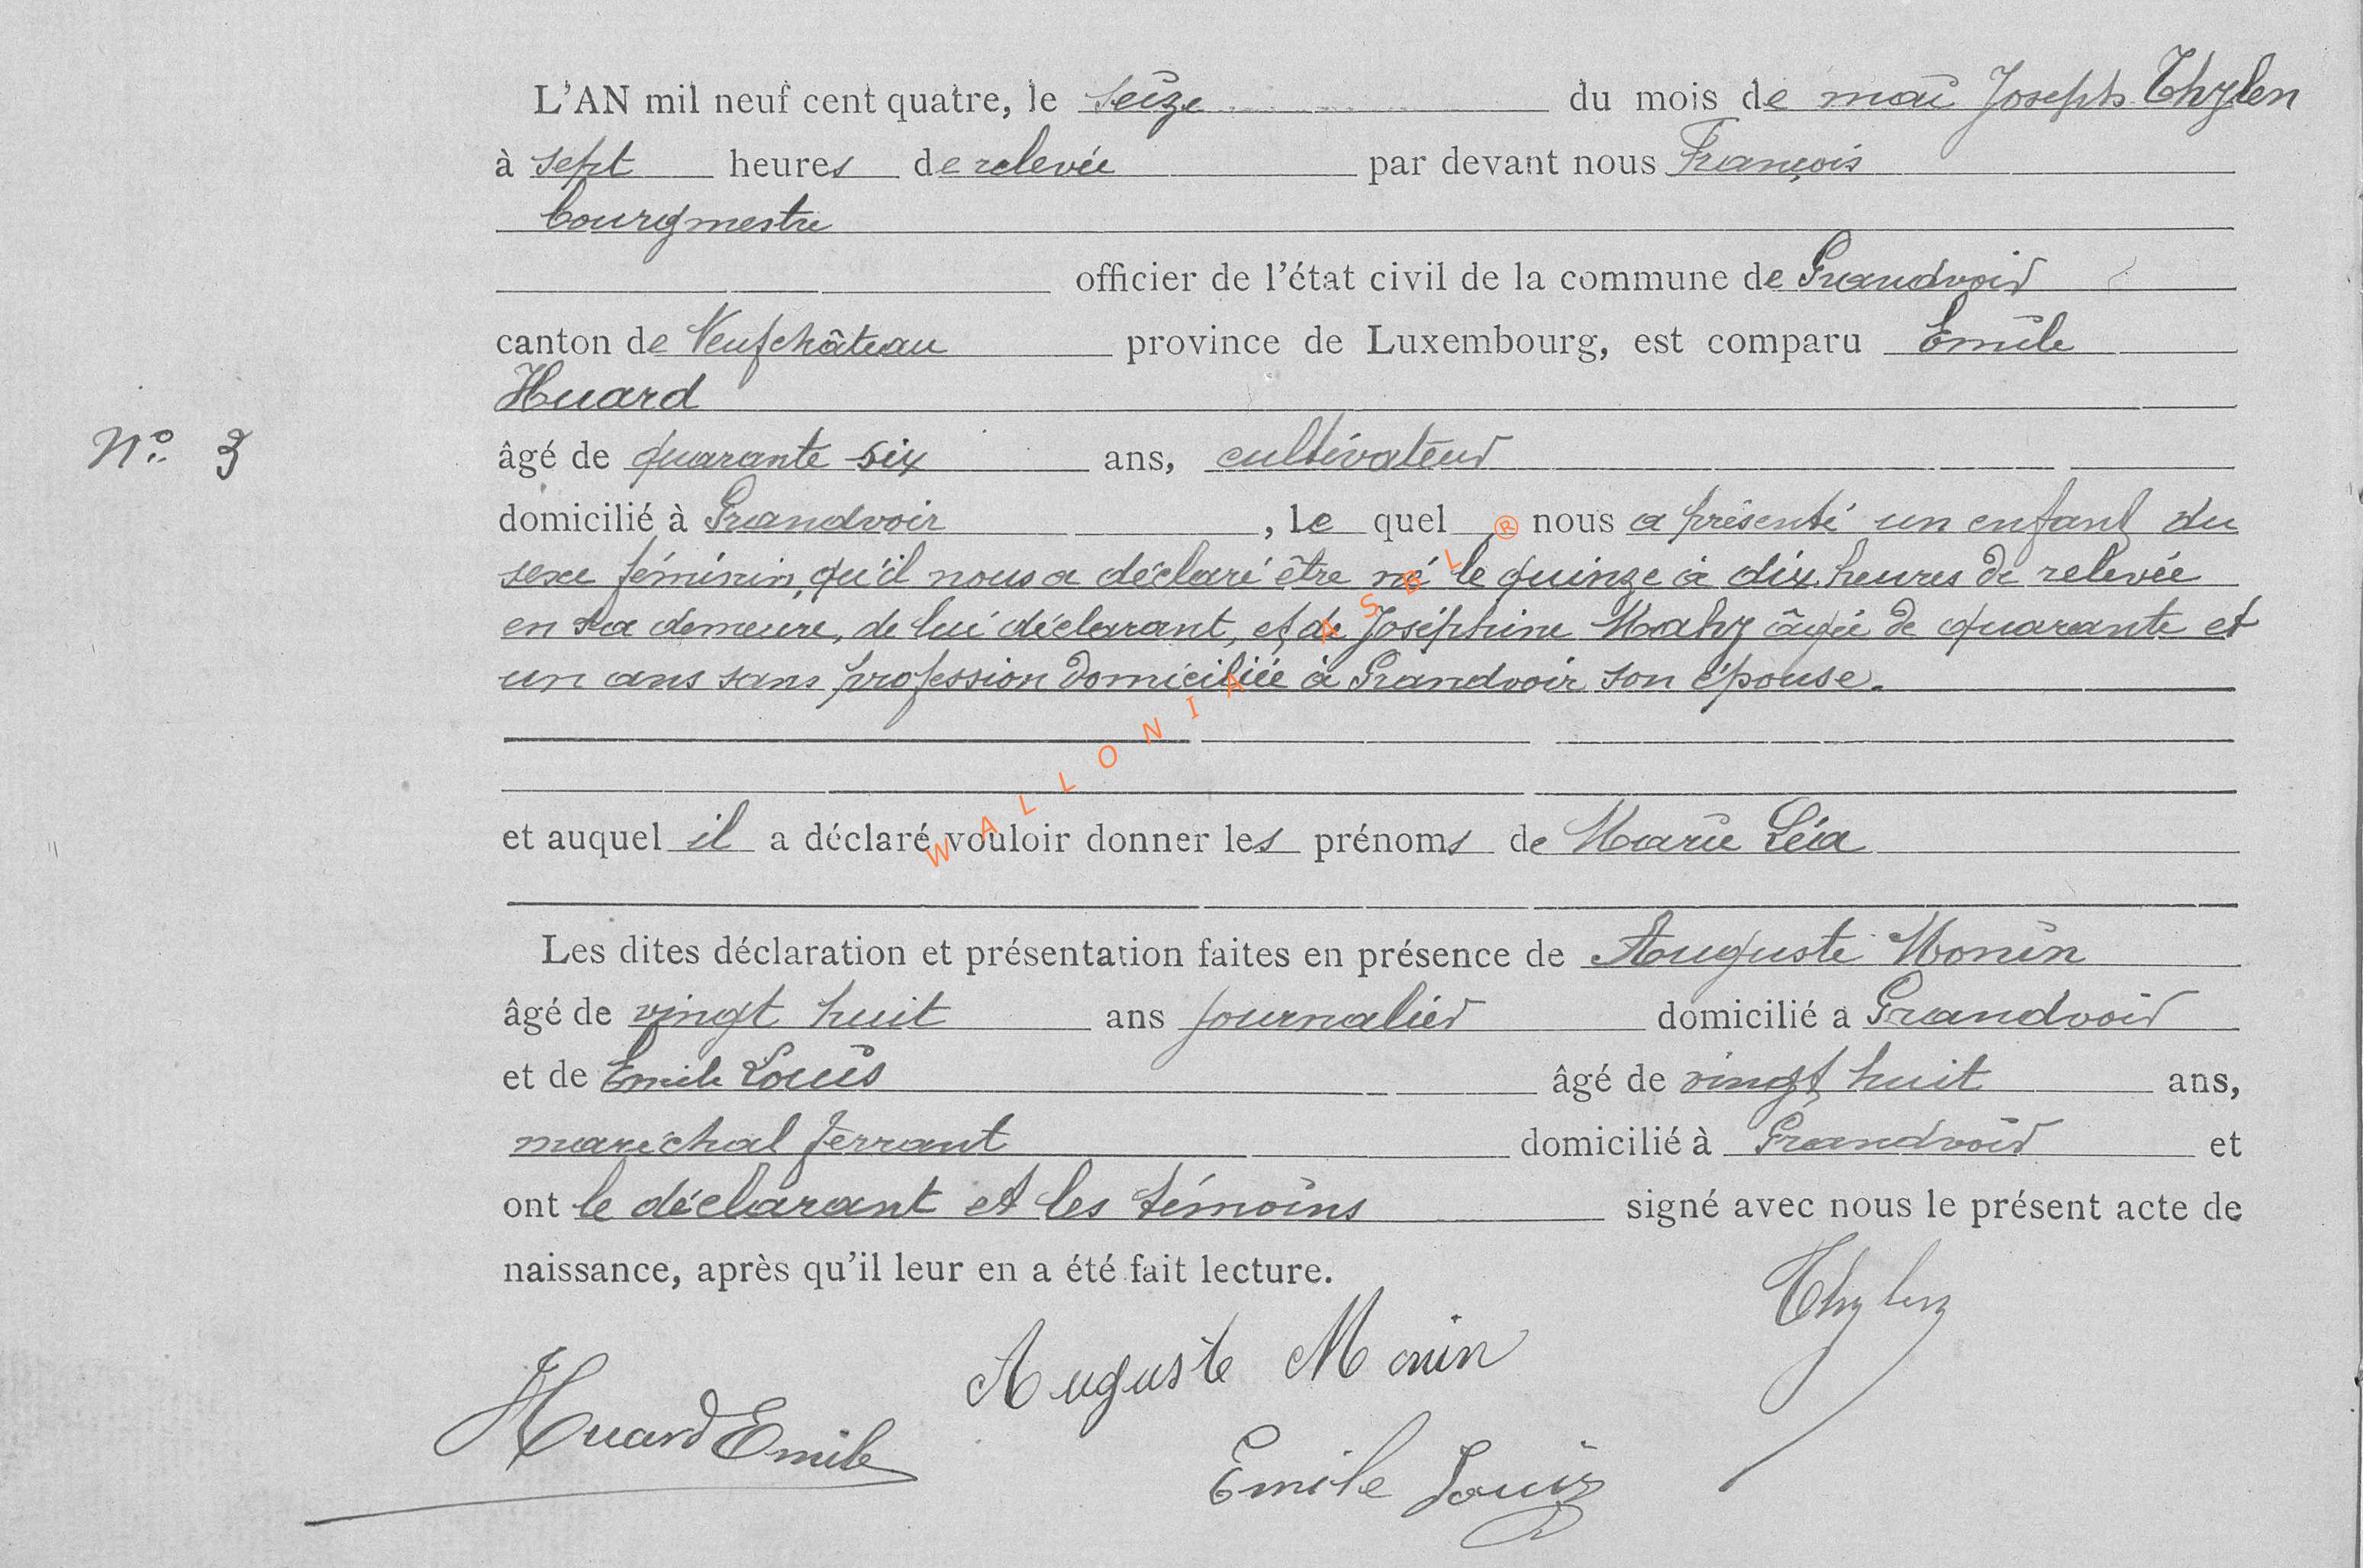 L'AN mil neuf cent quatre, le seize du mois de mai Joseph Thylen
à sept heures de relevée par devant nous François
bourgmestre
officier de l'état civil de la commune de Grandvoir
canton de Neufchâteau province de Luxembourg, est comparu Emile
Huard
N° 3
âgé de quarante six ans, cultivateur
domicilié à Grandvoir, le quel nous a présenté un enfant du
sexe féminin, qu'il nous a déclaré être né le quinze à dix heures de relevée
en sa demeure, de lui déclarant, et de Joséphine Mahy âgée de quarante et
un ans sans profession domiciliée à Grandvoir son épouse.
et auquel il a déclaré vouloir donner les prénoms de Marie Léa
Les dites déclaration et présentation faites en présence de Auguste Monin
âgé de vingt huit ans journalier domicilié a Grandvoir
et de Emile Louis âgé de vingt huit ans,
maréchal ferrant domicilié à Grandvoir et
ont le déclarant et les témoins signé avec nous le présent acte de
naissance, après qu'il leur en a été fait lecture.
Thylen
Auguste Monin
Huard Emile
Emile Louis
WALLONIA ASBL ®